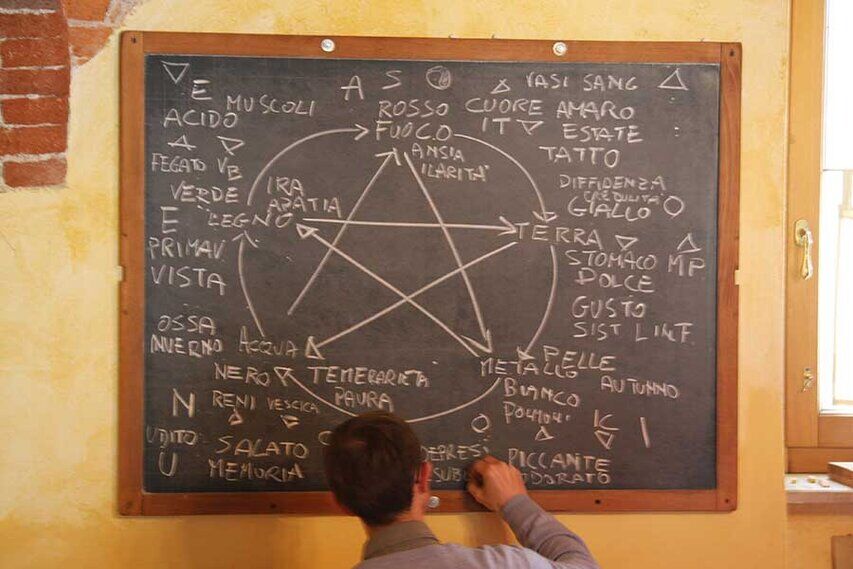 E
A S
VASI SANG
ACIDO
MUSCOLI
ROSSO
CUORE AMARO
FUOCO
IT
ESTATE
ANSIA
TATTO
ILARITA'
FEGATO VB
VERDE
IRA
APATIA
DIFFIDENZA
CREDULITA'
GIALLO
E
LEGNO
TERRA
PRIMAV
STOMACO MP
VISTA
DOLCE
GUSTO
SIST LINF.
OSSA
INVERNO
ACQUA
METALLO
PELLE
NERO
TEMERARIETA
BIANCO
AUTUNNO
N
RENI VESCICA
PAURA
POLMONI
IC
I
UDITO
SALATO
DEPRESI
PICCANTE
U
MEMORIA
ODORATO